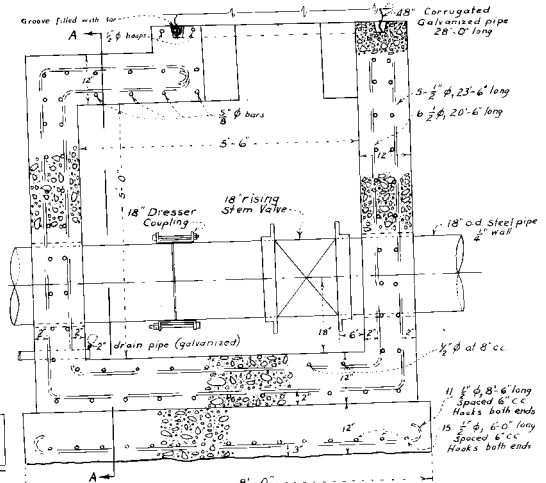 Groove filled with tar
48" Corrugated
Galvanized pipe
28'-0" long
A
½" ϕ hoops
12"
5/8" ϕ bars
5-½" ϕ, 23'-6" long
6 ½" ϕ, 20'-6" long
5'-6"
12"
5'-0"
18" rising
Stem Valve
18" Dresser
Coupling
18" o.d. steel pipe
¼" wall
18"
6"
2"
2"
2"
2"
2" drain pipe (galvanized)
½" ϕ at 8" cc
12"
2"
11 ½" ϕ, 8'-6" long
Spaced 6" cc
Hooks both ends
15 ½" ϕ, 6'-0" long
Spaced 6" cc
Hooks both ends
12"
3"
A
8'-0"